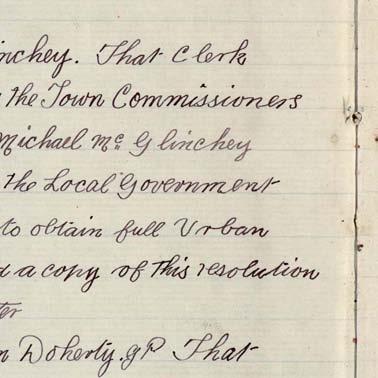 inchey. That Clerk
the Town Commissioners
Michael Mc Glinchey
the Local Government
to obtain full Urban
a copy of this resolution
ter
Doherty. J.P. That